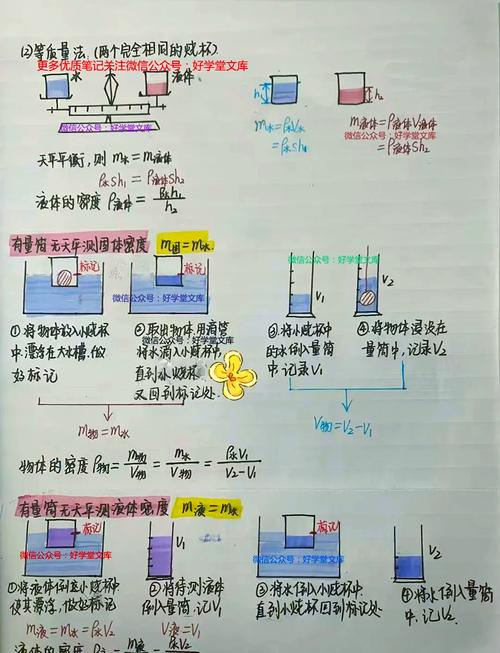 (2)等质量法.(两个完全相同的烧杯)
更多优质笔记关注微信公众号：好学堂文库
水
液体
微信公众号：好学堂文库
h₁
h₂
m水=ρ水V水
=ρ水Sh₁
m液体=ρ液体V液体
微信公众号：好学堂文库
=ρ液体Sh₂
天平平衡,则 m水=m液体
ρ水Sh₁=ρ液体Sh₂
液体的密度 ρ液体=ρ水h₁/h₂
有量筒无天平测固体密度 m固=m水
标记
标记
微信公众号：好学堂文库
微信公众号：好学堂文库
V₁
V₂
①将物体放入小烧杯
中,漂浮在大水槽,做
好标记
②取出物体,用滴管
微信公众号：好学堂文库
将水滴入小烧杯中,
直到小烧杯
又回到标记处.
③将小烧杯
中的水倒入量筒
中,记录V₁
④将物体浸没在
量筒中,记录V₂
m物=m水
V物=V₂-V₁
物体的密度 ρ物=m物/V物=m水/V物=ρ水V₁/V₂-V₁
有量筒无天平测液体密度 m液=m水
标记
微信公众号：好学堂文库
V₁
标记
微信公众号：好学堂文库
V₂
①将液体倒至小烧杯中
使其漂浮,做好标记
②将待测液体
倒入量筒,记V₁
③将水倒入小烧杯中,
直到小烧杯回到标记处
④将水倒入量筒
中,记V₂.
m液=m水=ρ水V₂
V液=V₁